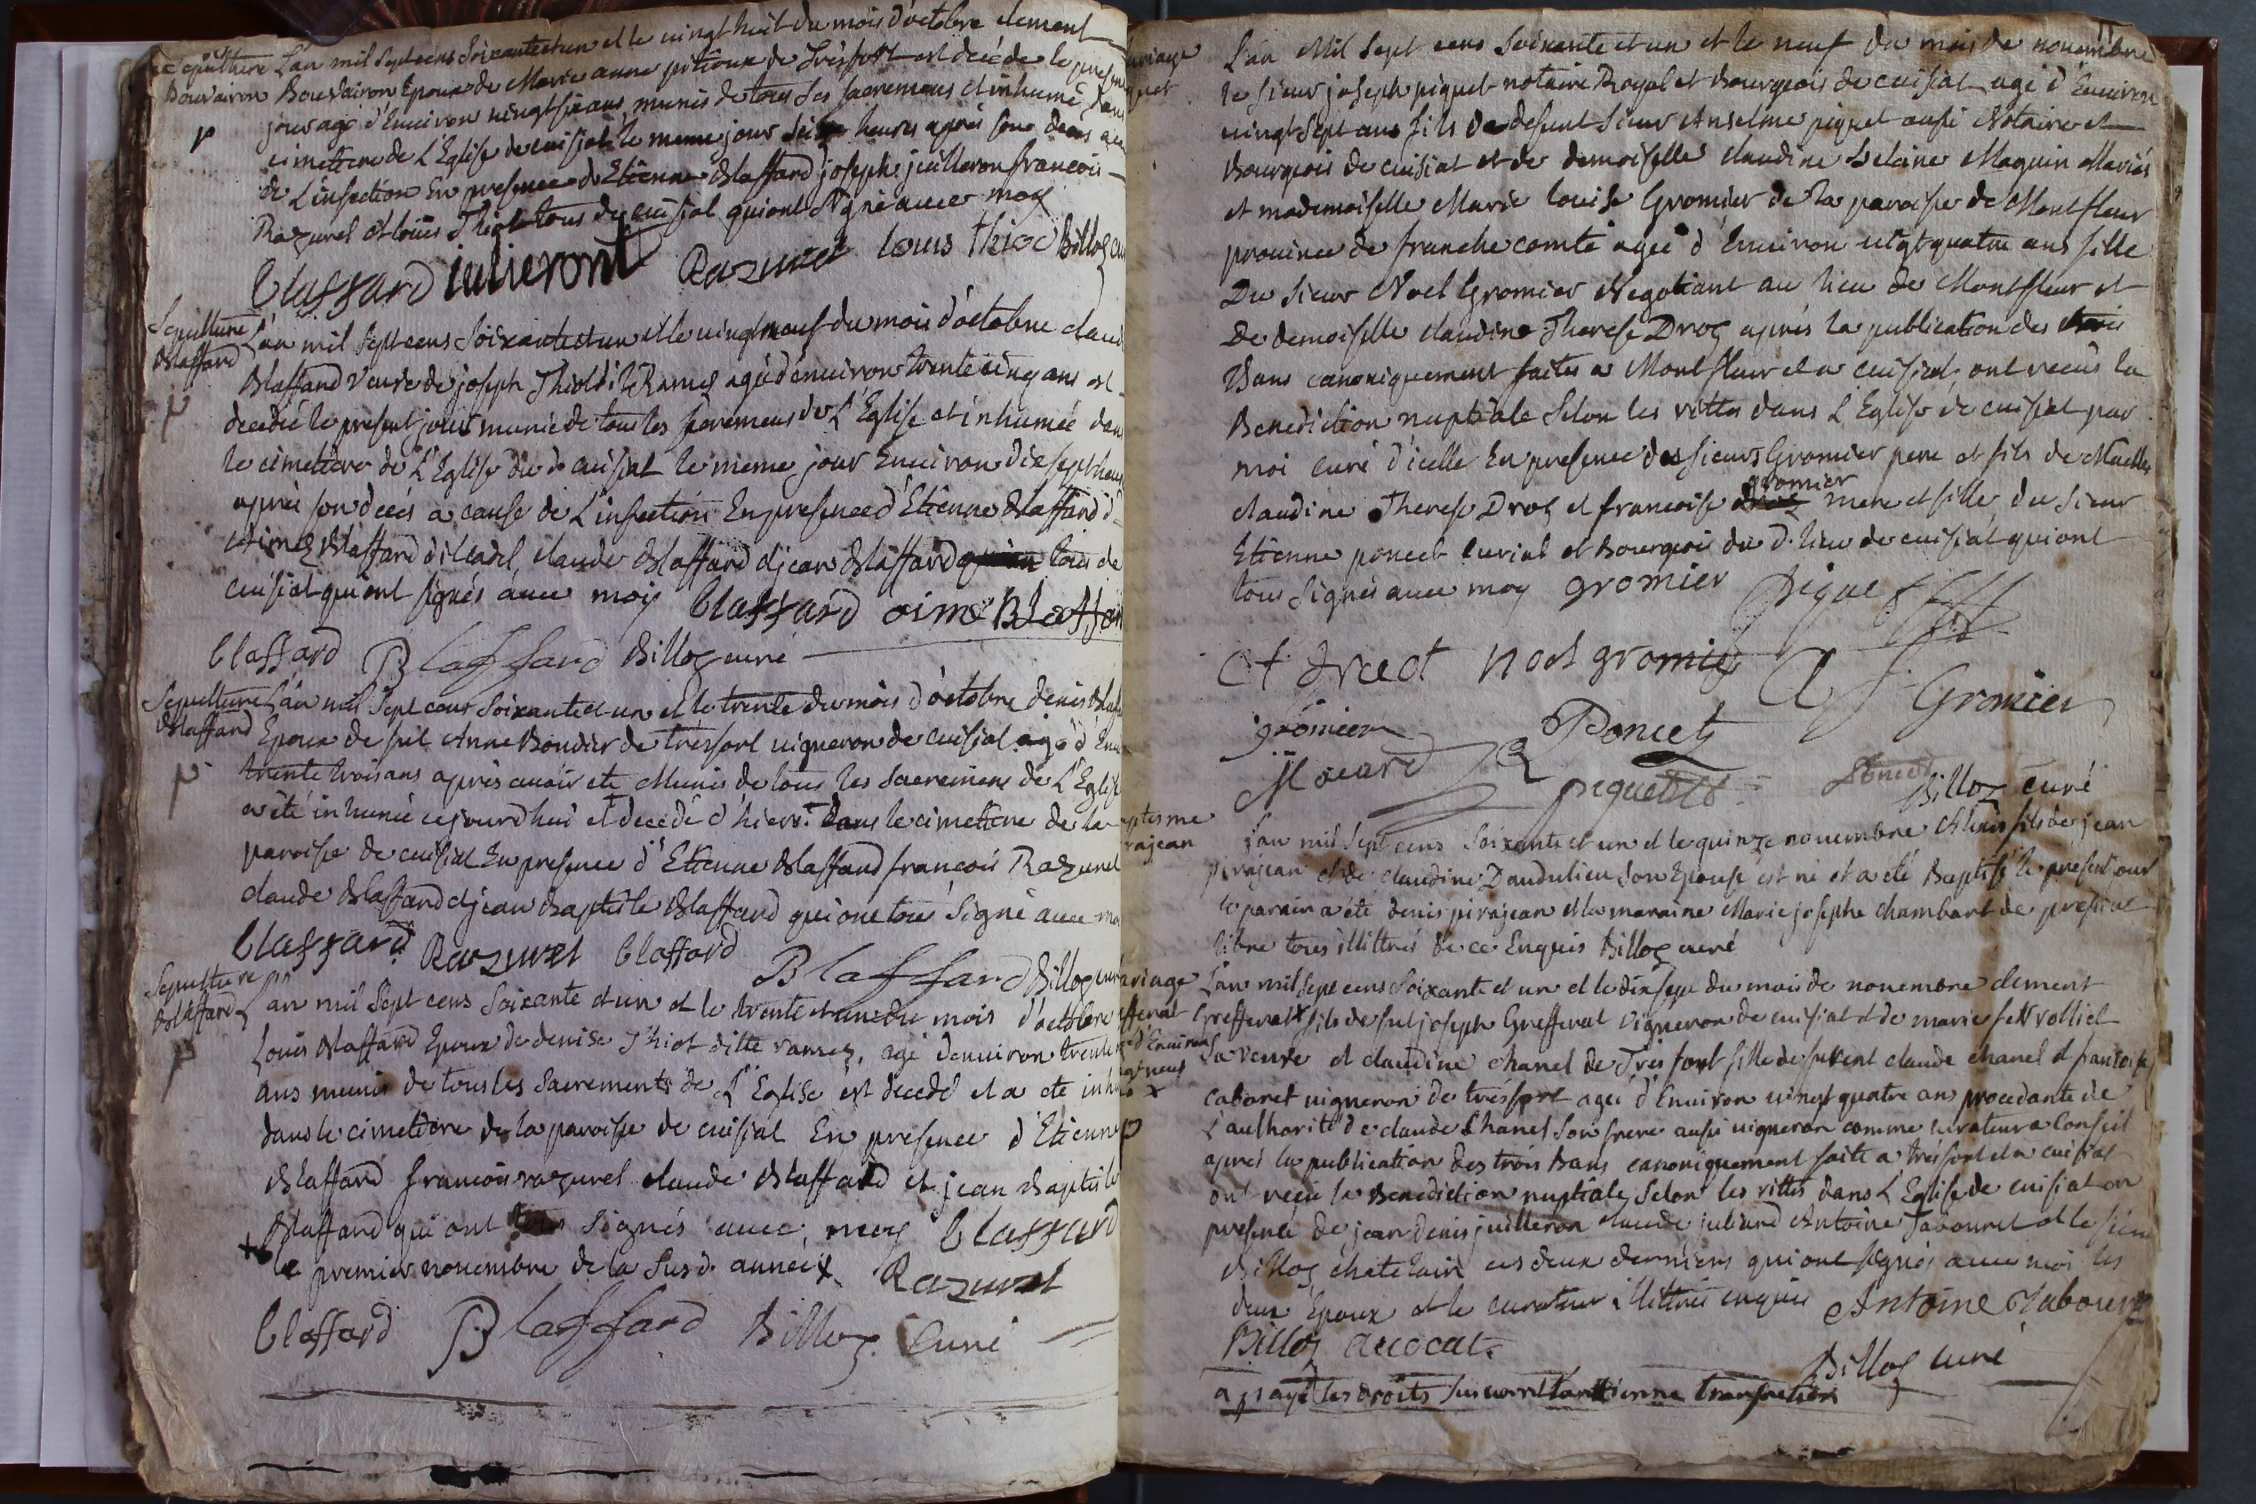 Sepulture L'an mil Sept cens Soixante et un et le vingt huit du mois d'octobre clement
Bouvairon Bouvairon Epoux de Marie anne de Trésfort est décédé le
jour agé d'Environ vingt six ans munis de tous Ses sacremens et inhumé dans
cimetiere de L'Eglise de cuisiat le meme jour heures aprés son deces
de L'infection En presence d'Etienne Blaffard joseph juilleron francois
Razurel et loüis Thiot tous de cuisiat qui ont Signé avec moy
Blaffard iulieront Razurel louis thiot Billoz
Sepulture L'an mil Sept cens Soixante et un et le vingt neuf du mois d'octobre
Blaffard Blaffard veuve de joseph Thiot dit Ramel agé d'environ trente cinq ans est
decedée le present jour munie de tous les sacremens de L'Eglise et inhumée dans
le cimetiere de L'Eglise du d. cuisiat le meme jour Environ dix sept heures
aprés son decés a cause de L'infection En presence d'Etienne Blaffard
Blaffard dit cadet, claude Blaffard et jean Blaffard tous de
cuisiat qui ont signés avec moy Blaffard aime Blaffar
Blaffard Blaffard Billoz curé
Sepulture L'an mil Sept cens Soixante et un et le trente du mois d'octobre denis
Blaffard Epoux de Anne Boudier de tresfort vigneron de cuisiat agé d'
trente trois ans aprés avoir eté Munis de tous les Sacremens de L'Eglise
a été inhumé cejourd'hui et decedé d'hiers dans le cimetiere de la
paroisse de cuisiat En presence d'Etienne Blaffard francois Razurel
claude Blaffard et jean Baptiste Blaffard qui ont tous Signé avec
Blaffard Razurel Blaffard Blaffard Billoz
Sepulture
Blaffard L'an mil Sept cens Soixante et un et le trente et un du mois d'octobre
Louis Blaffard Epoux de denise Thiot ditte ramez, agé denviron trente
ans munis de tous les Sacrements de L'Eglise est decedé et a ete
dans le cimetiere de la paroisse de cuisiat En presence d'Etienne
Blaffard francois razurel claude Blaffard et jean Baptiste
Blaffard qui ont Signés avec moy Blaffard
le premier novembre de la Susd. année Razurel
Blaffard Blaffard Billoz Curé
L'an Mil Sept cens Soixante et un et le neuf du mois de novembre
le Sieur joseph piquet notaire Royal et Bourgeois de cuisiat agé d'Environ
vingt Sept ans fils de defunt Sieur Anselme piquet aussi Notaire et
Bourgeois de cuisiat et de demoiselle claudine helaine Maquin Mariés
et mademoiselle Marie louise Gromier de la paroisse de Montfleur
province de franche comté agée d'Environ vingt quatre ans fille
Du Sieur Noel Gromier Negotiant au lieu de Montfleur et
De demoiselle claudine Therese Droz aprés la publication des trois
Bans canoniquement faites a Montfleur et a cuisiat ont recüs la
Benediction nuptiale Selon les rittes dans L'Eglise de cuisiat par
moi curé d'icelle En presence des sieurs Gromier pere et fils de
claudine Therese Droz et francoise gromier mere et fille du Sieur
Etienne poncet curial et Bourgeois du d. lieu de cuisiat qui ont
tous Signés avec moy gromier Piquet
noel gromier
gromier Poncet Gromier
piquet Poncet
Billoz curé
L'an mil Sept cens Soixante et un et le quinze novembre fils de jean
pirajean et de claudine Daudulieu son Epouse est né et a eté Baptisé le présent jour
le parain a été denis pirajean et la maraine Marie josephe chambart de
tous illittrés de ce Enquis Billoz curé
L'an mil Sept cens Soixante et un et le dix sept du mois de novembre clement
Grefferat fils de joseph Grefferat vigneron de cuisiat et de marie
Sa veuve et claudine chanel de Trésfort fille de claude chanel et francoise
cabaret vigneron de trésfort agée d'Environ vingt quatre ans procedante de
L'authorité de claude Chanel Son frere aussi vigneron comme curateur a Conseil
aprés la publication des trois Bans canoniquement faite a trésfort et a cuisiat
ont reçu la Benediction nuptiale Selon les rittes dans L'Eglise de cuisiat en
presence de jean denis juilleron claude Antoine Tabouret et le sieur
Billoz chatelain ces deux derniers qui ont signés avec moi les
deux Epoux et le curateur illittrés enquis Antoine Tabouret
Billoz avocat
Billoz curé
a payé les droits